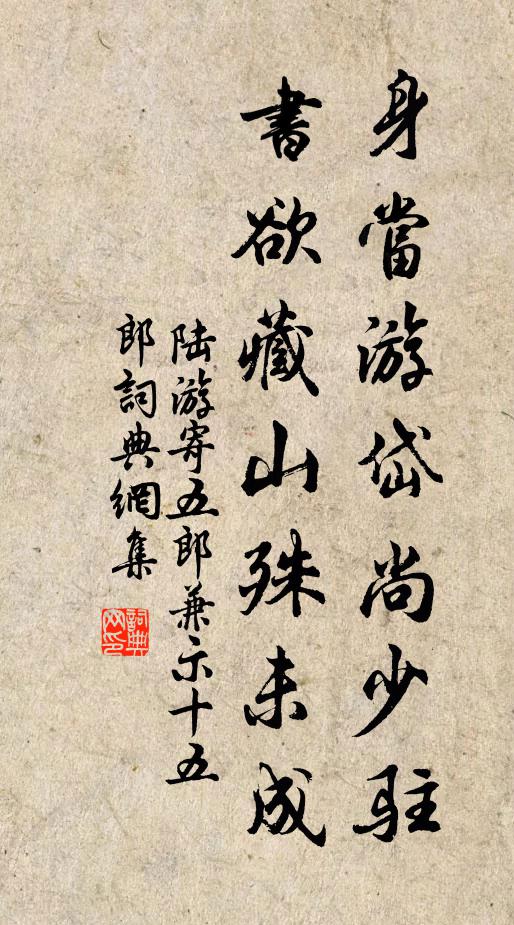 身當游岱尚少駐
書欲藏山殊未成
陸游寄五郎兼示十五
郎詞典網集
詞典
网印